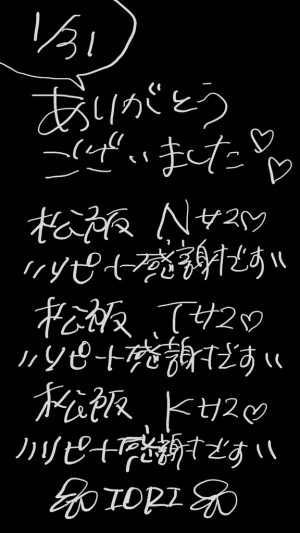 1/31
ありがとう
ございました♡♡
松阪 Nサマ♡
〃リピート感謝です〃
松阪 Tサマ♡
〃リピート感謝です〃
松阪 Kサマ♡
〃リピート感謝です〃
IORI